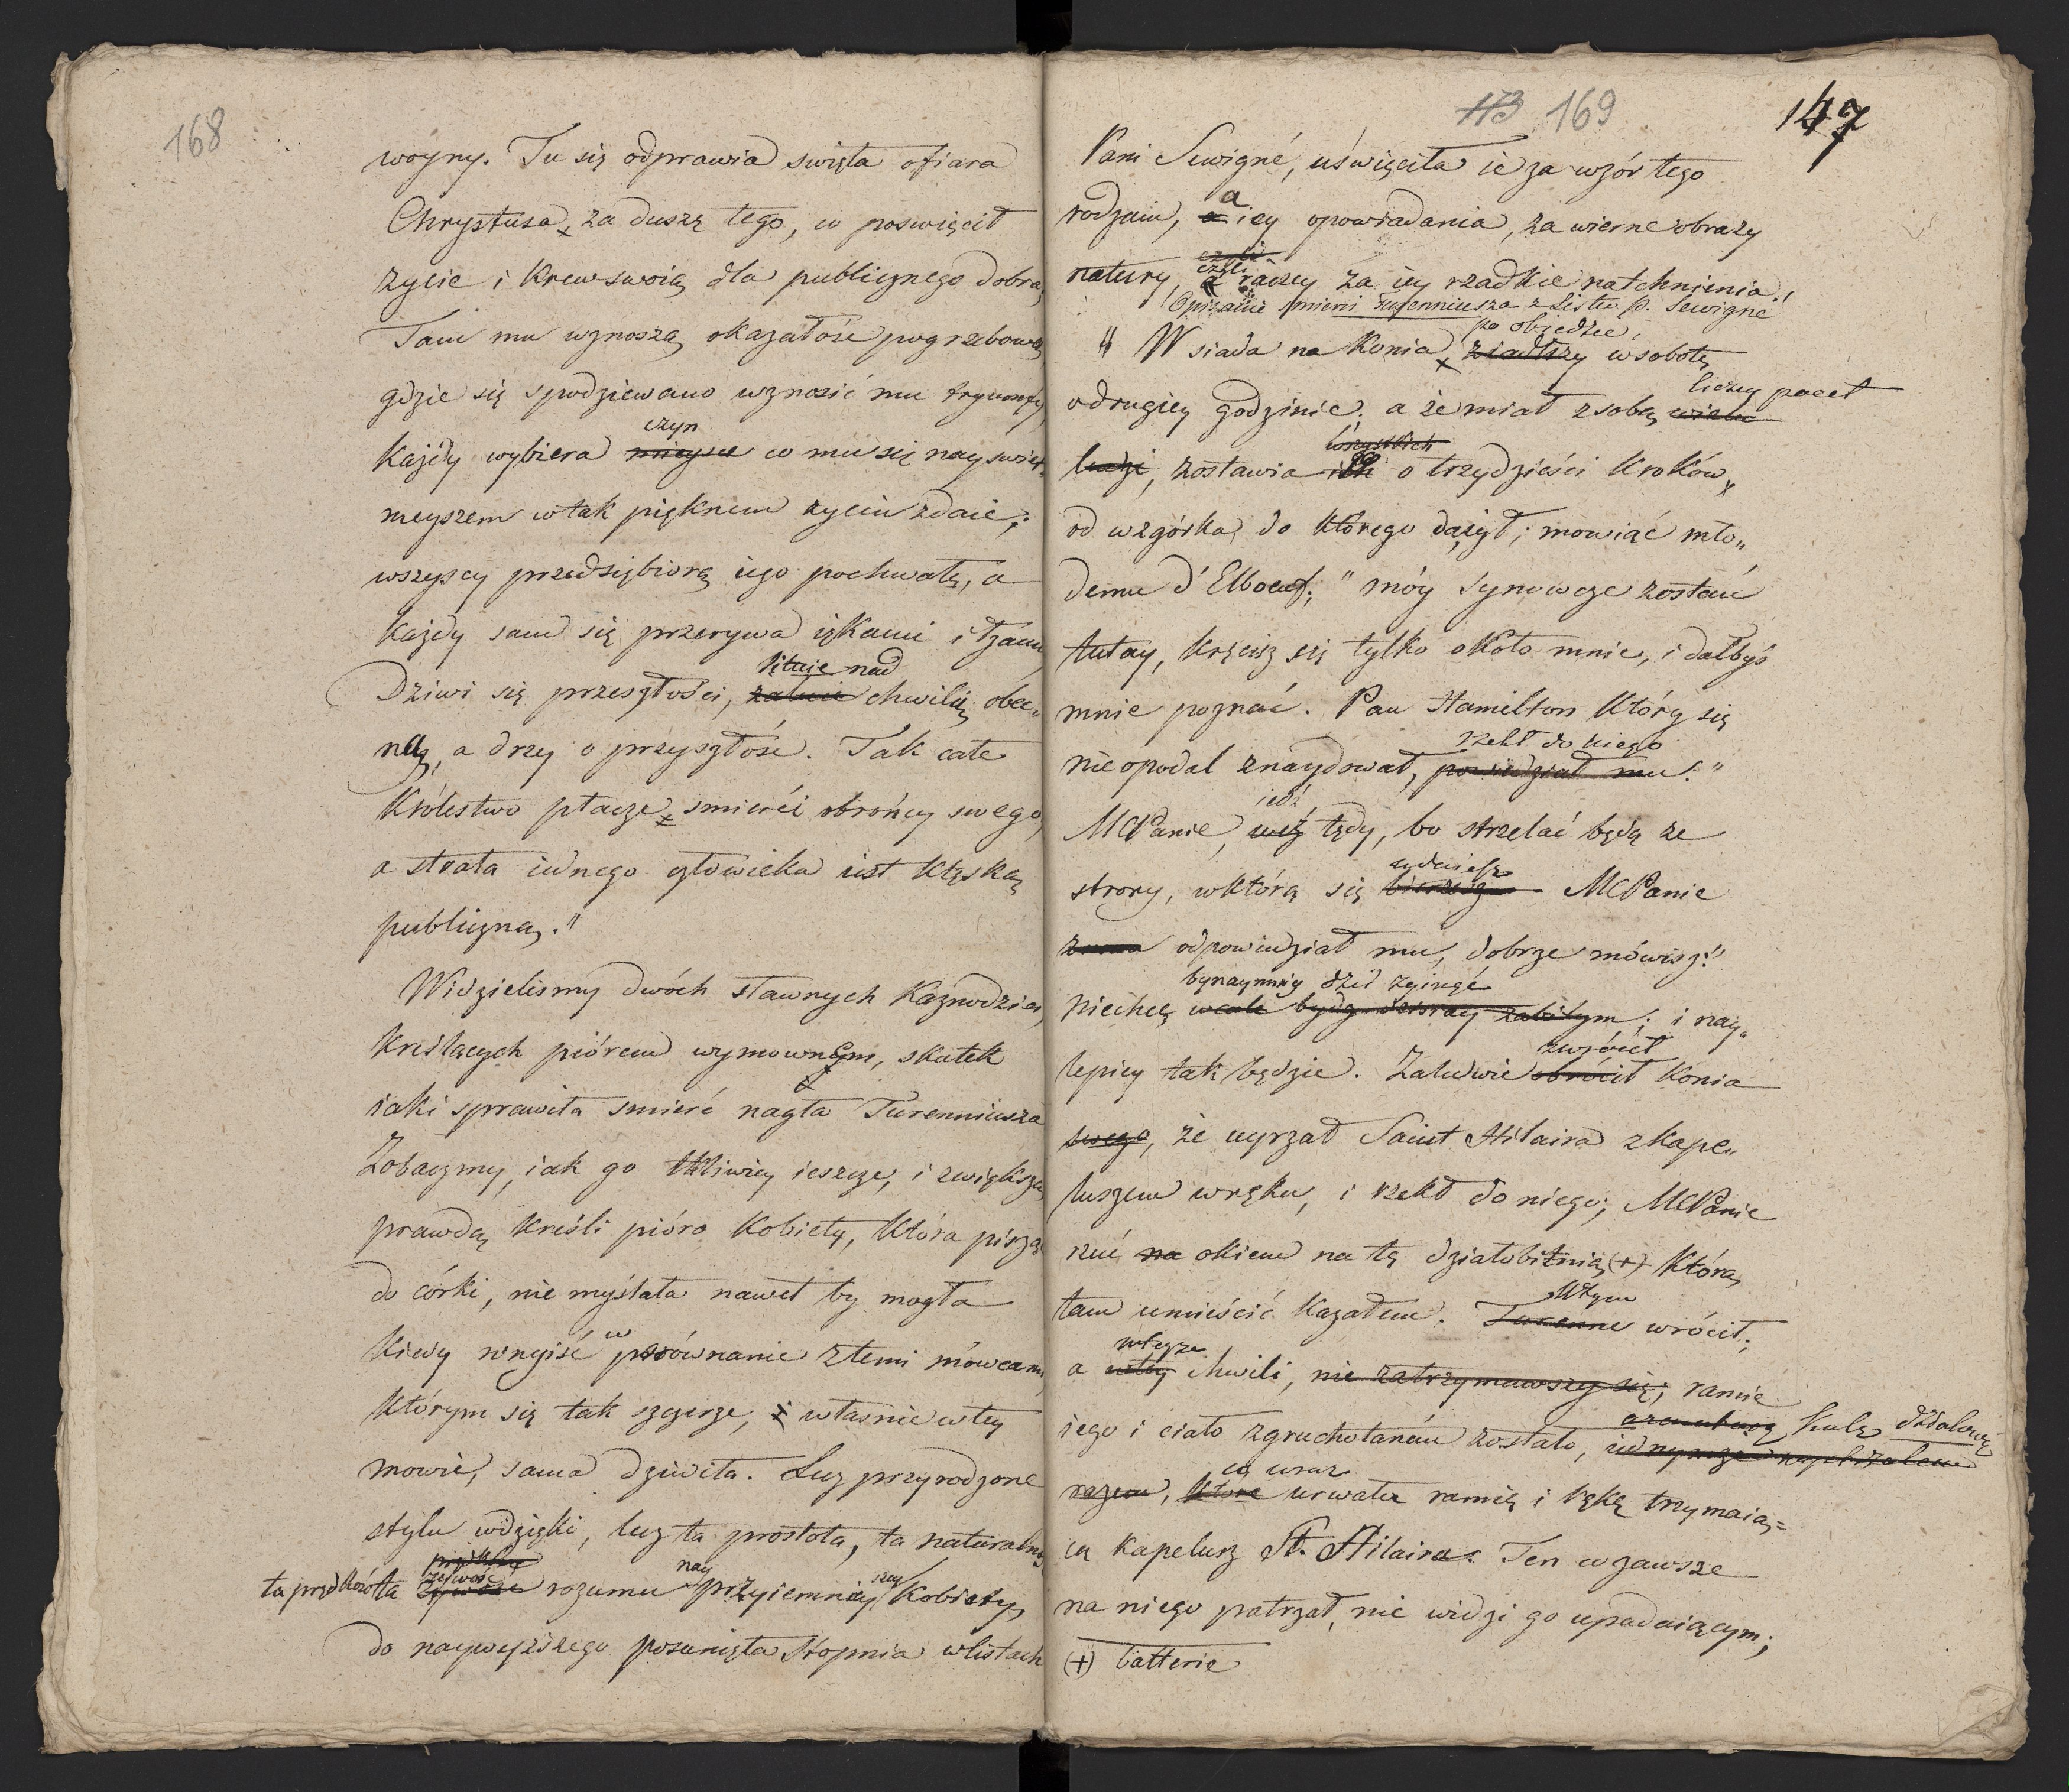 168
woyny. Tu się odprawia swięta ofiara
Chrystusa, za duszę tego, co poswięcił
zycie i Krew swoią dla publicznego dobra,
Tam mu wznoszą okazałość pogrzebową
gdzie się spodziewano wznosić mu tryumfy,
czyn
Każdy wybiera mieysce co mu się nayswiet-
nieyszem w tak pięknem zyciu zdaie;
wszyscy przedsiębiorą iego pochwałę, a
Każdy sam się przerywa ięKami i łzami
lituie nad
Dziwi się przeszłości, załuie chwilą obec„
ną, a drzy o przyszłość. Tak całe
Królestwo płacze smierći obrońcy swego,
a strata iednego człowieka iest klęską
publiczną."
Widzielismy dwóch sławnych Kaznodziei,
Kreślących piórem wymownem, skutek
iaki sprawiła smierć nagła Turenniusza
Zobaczmy, iak go tkliwiey ieszcze, i zwiększą
prawdą kreśli pióro Kobiety, Która pisząc
do córki, nie myślała nawet by mogła
kiedy wnyiść w porównanie z temi mówcami,
Którym się tak szczerze, i własnie w tey
mowie, sama dziwiła. Lecz przyrodzone
stylu wdzięki, lecz ta prostota, ta naturalność
prędkość
żywość nay szey
ta prędkość ta żywość rozumu przyiemniey Kobiety,
do naywyższego posunięta stopnia w listach
173 169 147
Pani Sewigné, uświęciła ie za wzór tego
a
rodzaiu, a iey opowiadania, za wierne obrazy
czyli
natury a raczey za iey rzadkie natchnienia.
Opisanie smierci Turenniusza z Listu P. Sewigné
po obiedzie
" Wsiada na Konia, ziadłszy w sobotę
liczny poczet
o drugiey godzinie; a że miał z sobą wielu
wszystkich
ludzi, zostawia ich o trzydzieści Kroków
od wzgórka, do Którego dążył; mowiąc mło„
demu d'Elboeuf; "móy Synowcze zostań
tutay, kręcisz się tylko około mnie, i dałbyś
mnie poznać. Pan Hamilton Który się
rzekł do niego
nieopodal znaydował, powiedział mu: "
iedź
MCPanie, tędy, bo strzelać będą ze
udaiesz
strony, w którą się bierzesz MCPanie
odpowiedział mu, dobrze mówisz!"
bynaymniey dziś zginąć
niechcę wcale bydz dzisiay zabitym; i nay„
zwrócił
lepiey tak będzie. Zaledwie obrócił Konia
swego, że uyrzał Saint Hilaira z kape„
luszem w ręku, i rzekł do niego; MCPanie
rzuć na okiem na tę działobitnią (+) Którą
Wtym
tam umieścić Kazałem. Turenne wrócił;
w teyże
a w tey chwili, nie zatrzymawszy się; ramie
kulą działową
iego i ciało zgruchotaném zostało, iednymże wystrzałem
co wraz
razem, które urwała ramię i rękę trzymaią=
cą kapelusz St. Hilaira. Ten co zawsze
na niego patrzał, nie widzi go upadaiącym;
(+) batterię